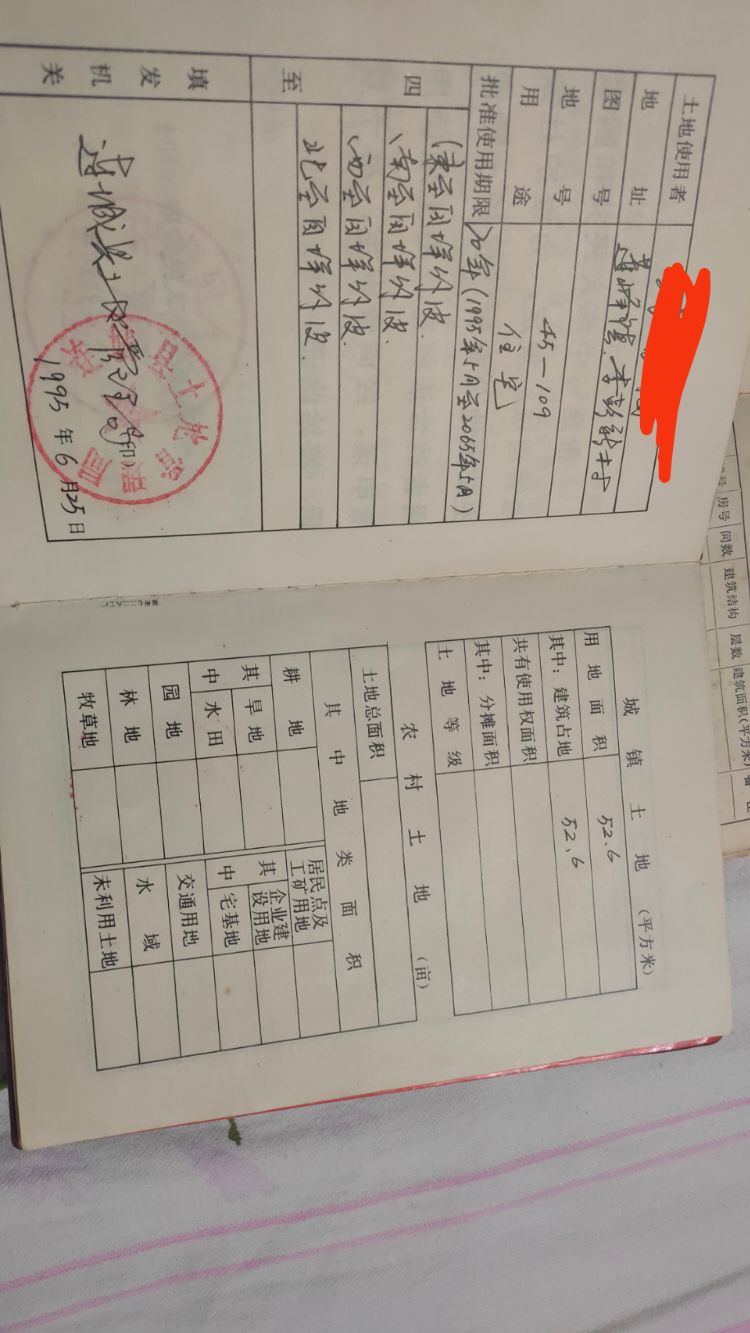 土地使用者
地址 李彭新村
图号
地号 45—109
用途 住宅
批准使用期限 70年(1995年5月至2065年5月)
四至
东至围墙外皮.
南至围墙外皮.
西至围墙外皮.
北至围墙外皮.
填发机关
(印)
1995年6月25日
城镇土地 (平方米)
用地面积 52、6
其中:建筑占地 52、6
共有使用权面积
其中:分摊面积
土地等级
农村土地 (亩)
土地总面积
其中地类面积
耕地 居民点及工矿用地
其中 旱地 其中 企业建设用地
水田 宅基地
园地 交通用地
林地 水域
牧草地 未利用土地
房号 间数 建筑结构 层数 建筑面积(平方米)